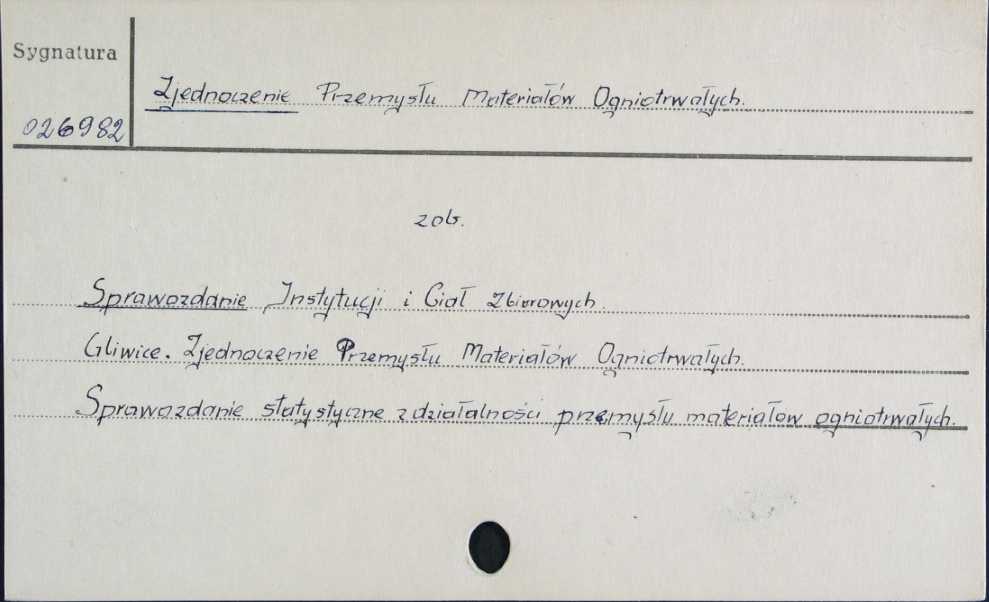 Sygnatura
Zjednoczenie Przemysłu Materiałów Ogniotrwałych.
026982
zob.
Sprawozdanie Instytucji i Ciał Zbiorowych.
Gliwice. Zjednoczenie Przemysłu Materiałów Ogniotrwałych.
Sprawozdanie statystyczne z działalności przemysłu materiałow ogniotrwałych.